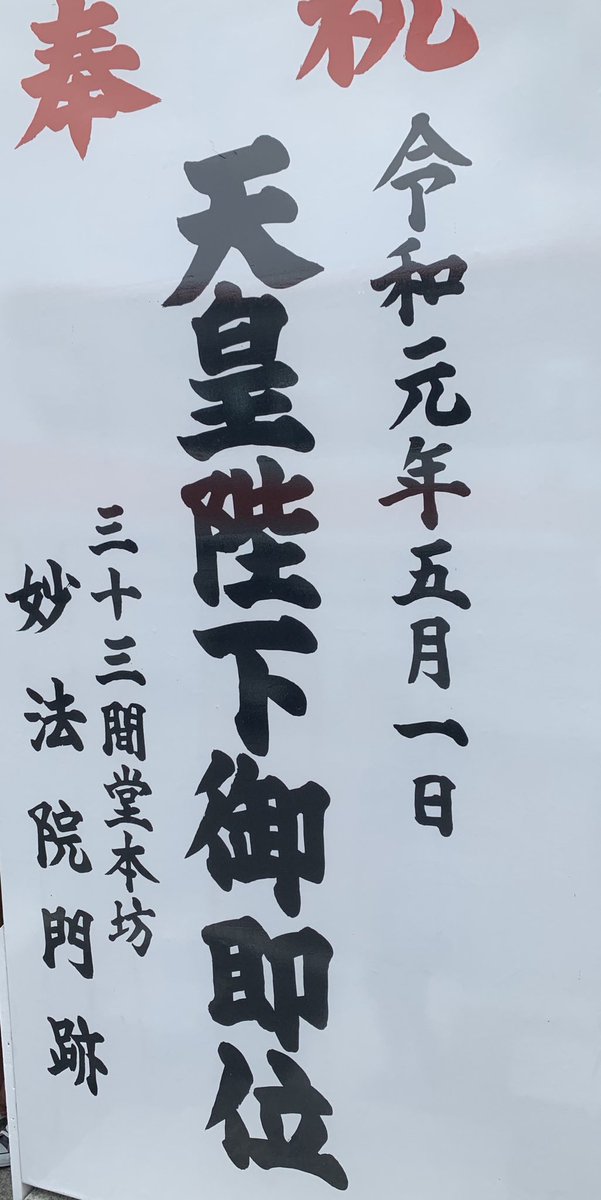 奉祝
令和元年五月一日
天皇陛下御即位
三十三間堂本坊
妙法院門跡